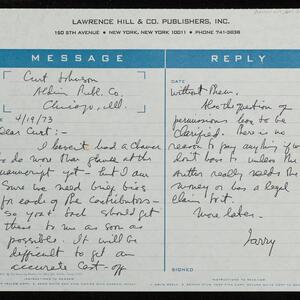 LAWRENCE HILL & CO. PUBLISHERS, INC.
150 5TH AVENUE • NEW YORK, NEW YORK 10011 • PHONE 741-3838
MESSAGE
Curt Johnson
Aldine Publ. Co.
Chicago, Ill.
4/19/73
Dear Curt:—
I haven't had a chance
to do more than glance at the
manuscript yet — but I am
sure we need brief bios
for each of the contributors —
so you should get
them to me as soon as
possible. It will be
difficult to get an
accurate cast-off
REPLY
DATE
without them.
Also the question of
permissions has to be
clarified. There is no
reason to pay anything if we
don't have to unless the
author really needs the
money or has a legal
claim to it.
More later—
Larry
SIGNED